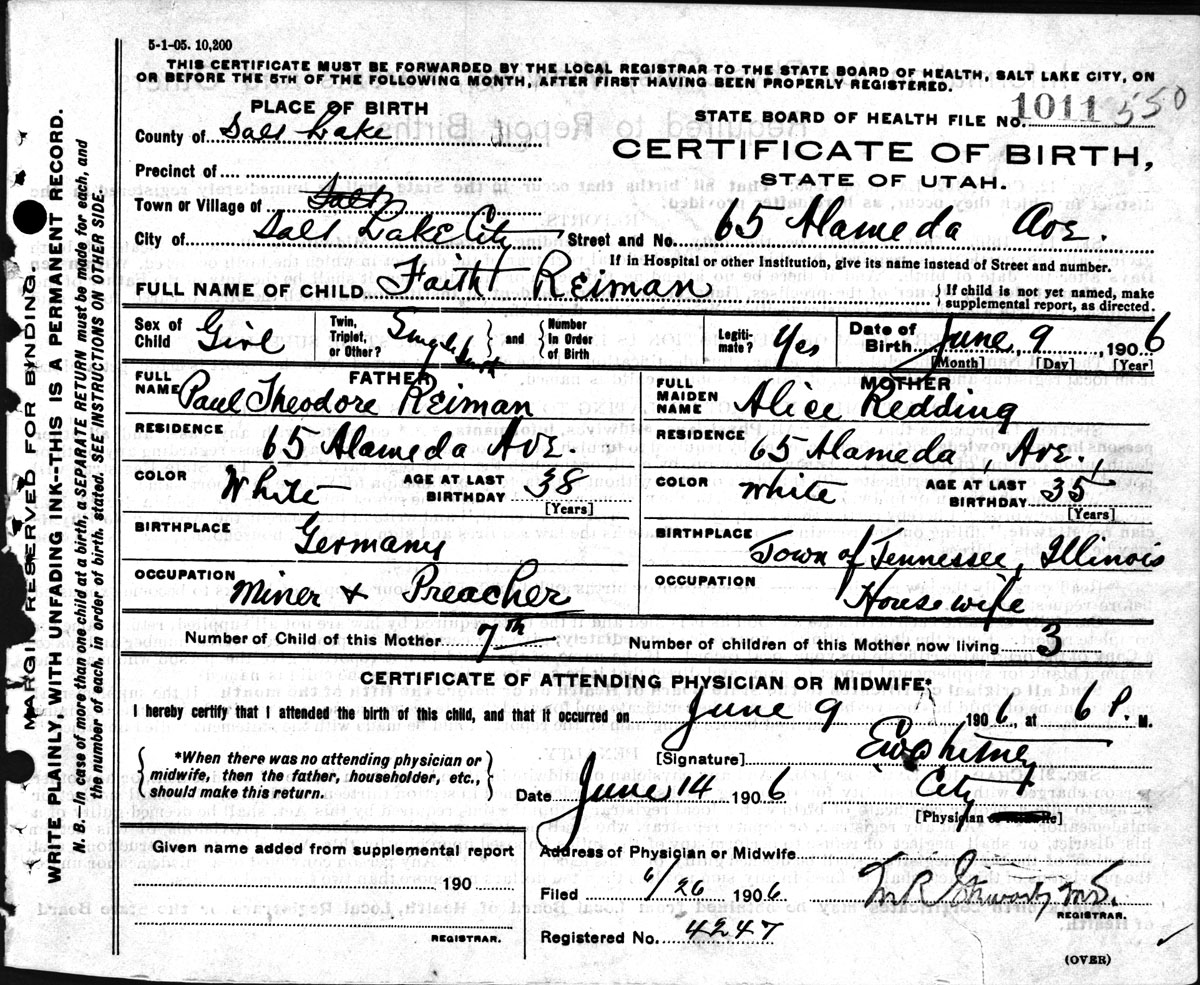 5-1-05. 10,200
THIS CERTIFICATE MUST BE FORWARDED BY THE LOCAL REGISTRAR TO THE STATE BOARD OF HEALTH, SALT LAKE CITY, ON
OR BEFORE THE 5TH OF THE FOLLOWING MONTH, AFTER FIRST HAVING BEEN PROPERLY REGISTERED.
PLACE OF BIRTH
STATE BOARD OF HEALTH FILE NO. 1011 550
County of Salt Lake
CERTIFICATE OF BIRTH,
Precinct of
STATE OF UTAH.
Town or Village of Salt
City of Salt Lake City Street and No. 65 Alameda Ave.
If in Hospital or other Institution, give its name instead of Street and number.
FULL NAME OF CHILD Faith Reiman { If child is not yet named, make supplemental report, as directed.
Sex of Child Girl Twin, Triplet, or Other? Single birth } and { Number In Order of Birth Legiti-mate? Yes Date of Birth June 9 1906
[Month] [Day] [Year]
FATHER
FULL NAME Paul Theodore Reiman
RESIDENCE
65 Alameda Ave.
COLOR White AGE AT LAST BIRTHDAY 38
[Years]
BIRTHPLACE
Germany
OCCUPATION
Miner & Preacher
MOTHER
FULL MAIDEN NAME Alice Redding
RESIDENCE
65 Alameda, Ave,
COLOR White AGE AT LAST BIRTHDAY 35
[Years]
BIRTHPLACE
Town of Tennessee, Illinois
OCCUPATION
Housewife
Number of Child of this Mother 7th Number of children of this Mother now living 3
CERTIFICATE OF ATTENDING PHYSICIAN OR MIDWIFE*
I hereby certify that I attended the birth of this child, and that it occurred on June 9 1906, at 6 P. M.
{ *When there was no attending physician or midwife, then the father, householder, etc., should make this return. }
[Signature]
Date June 14 1906 City
[Physician or Midwife]
Given name added from supplemental report
190
REGISTRAR.
Address of Physician or Midwife
Filed 6/26 1906
REGISTRAR.
Registered No. 4247
(OVER)
MARGIN RESERVED FOR BINDING.
WRITE PLAINLY, WITH UNFADING INK--THIS IS A PERMANENT RECORD.
N. B.—In case of more than one child at a birth, a SEPARATE RETURN must be made for each, and
the number of each, in order of birth, stated. SEE INSTRUCTIONS ON OTHER SIDE.